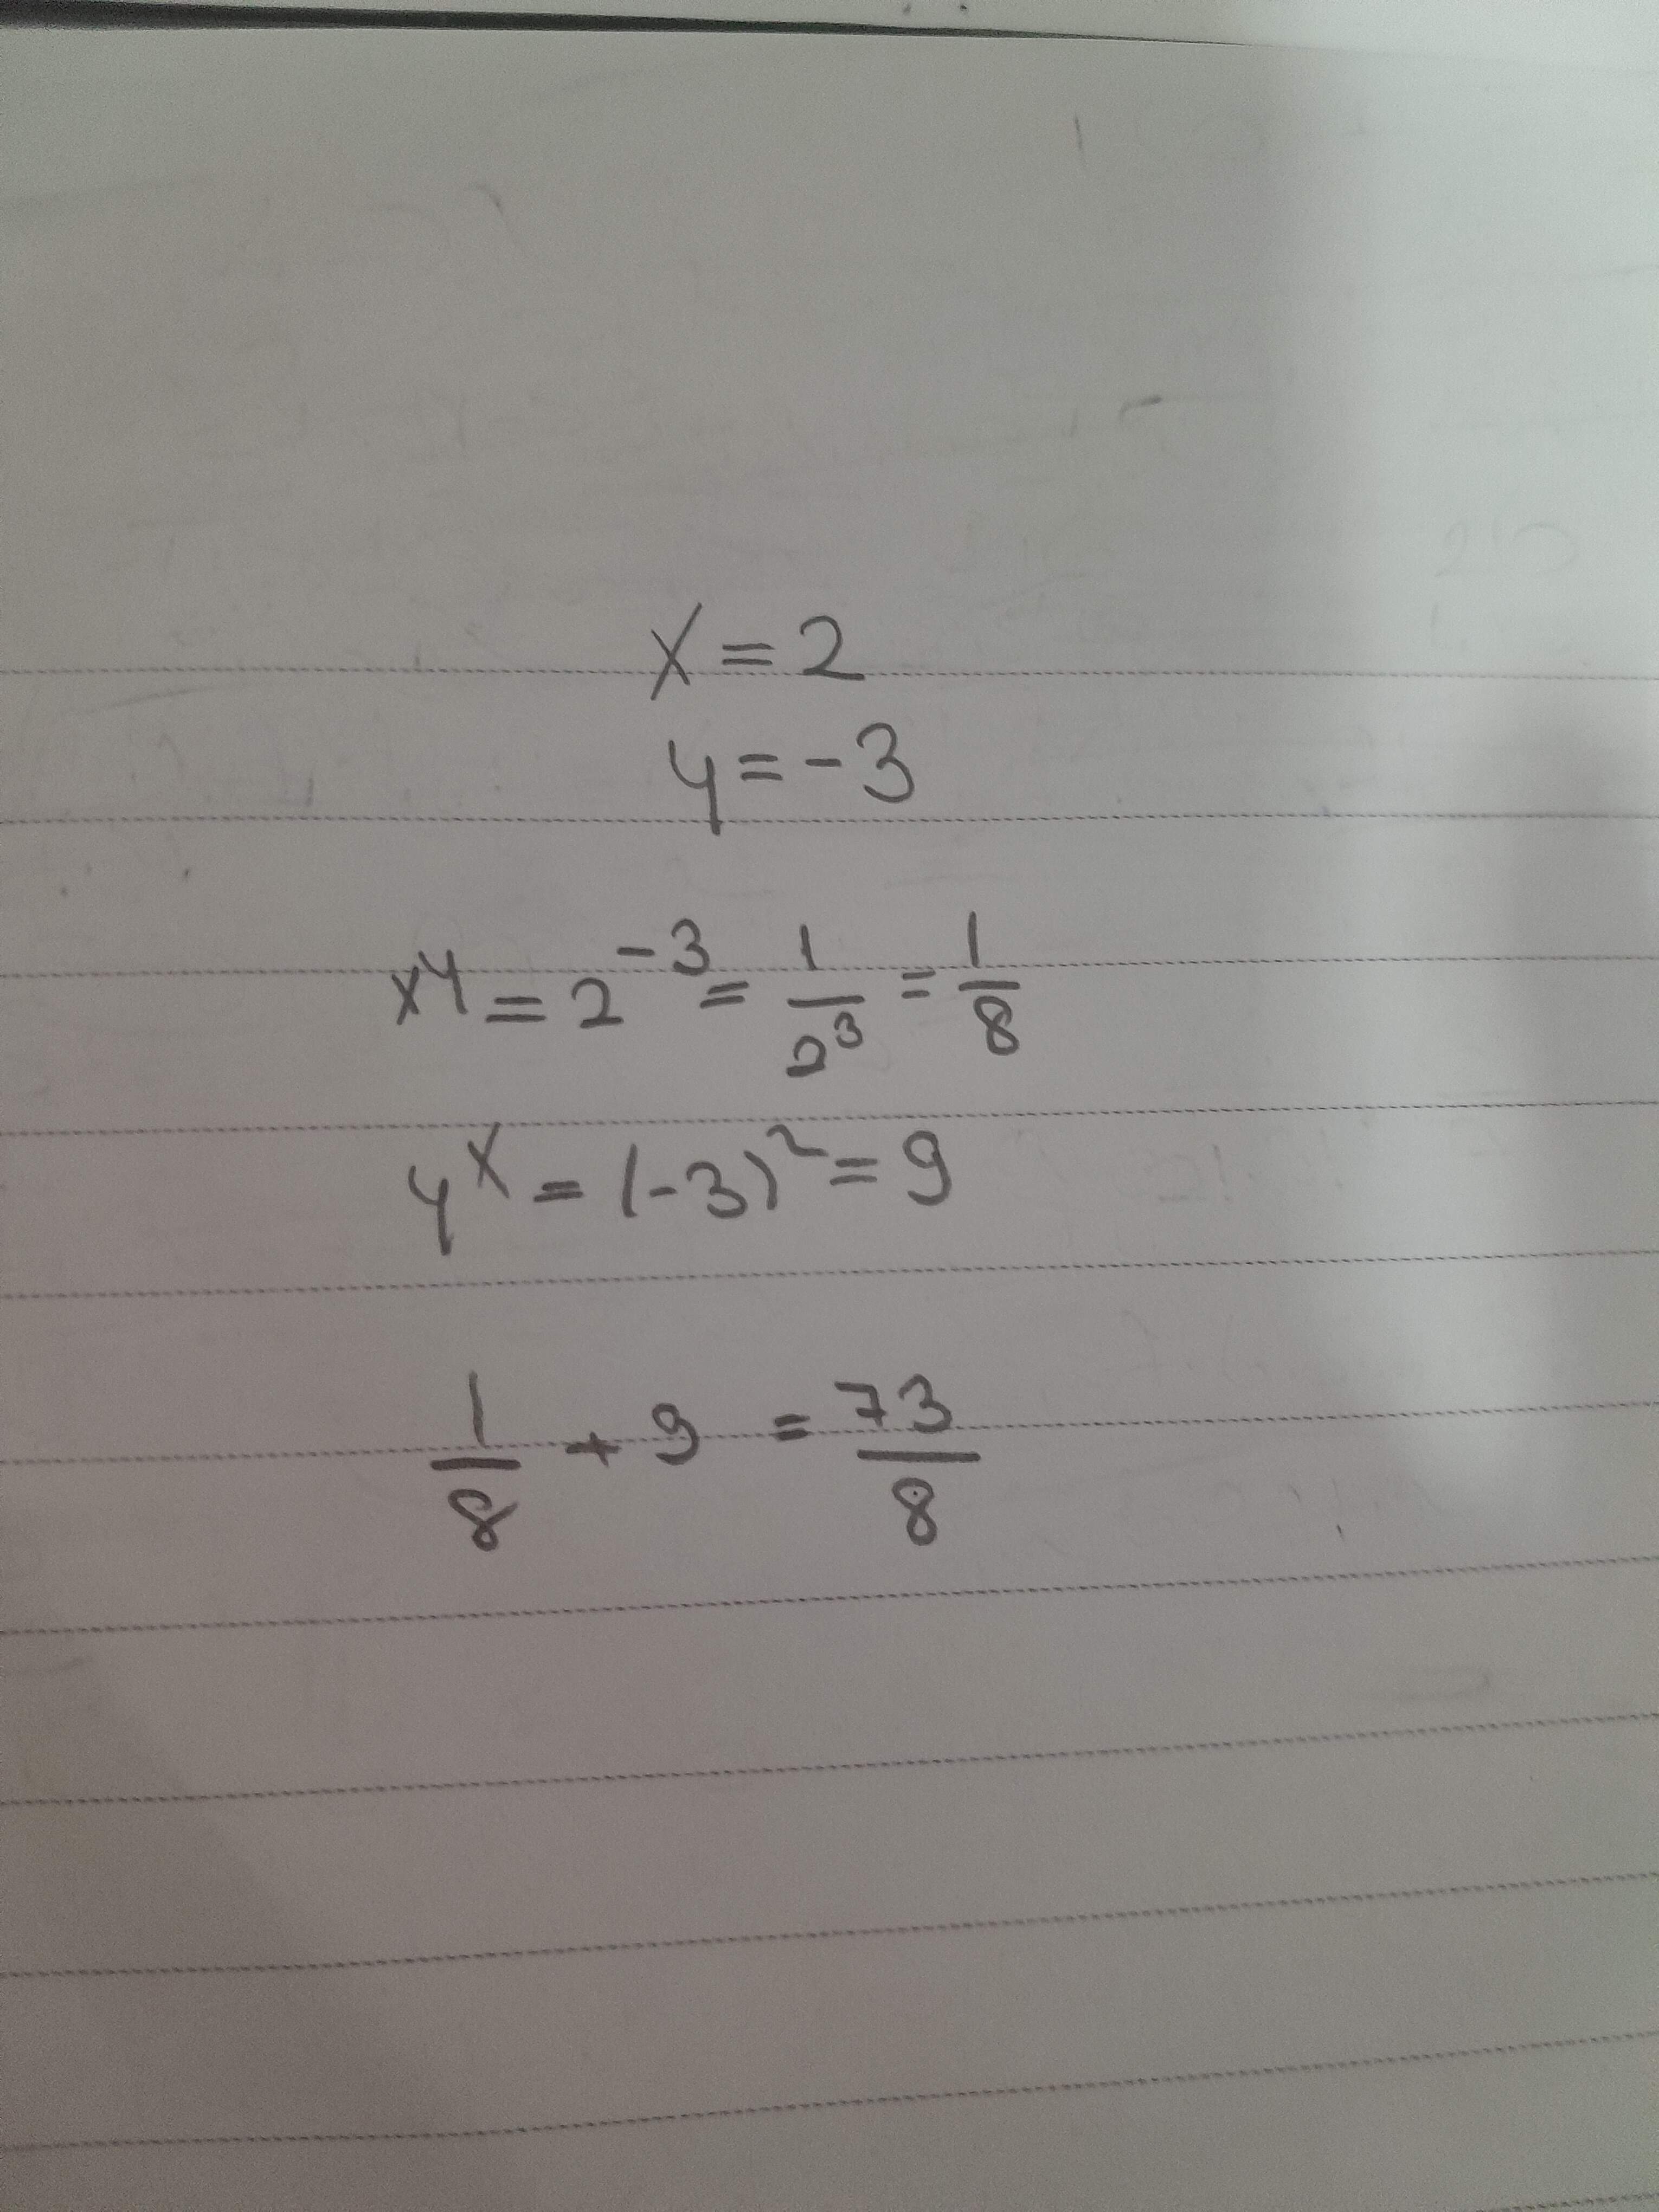 x = 2
y = -3
x^y = 2^-3 = 1/2^3 = 1/8
y^x = (-3)^2 = 9
1/8 + 9 = 73/8